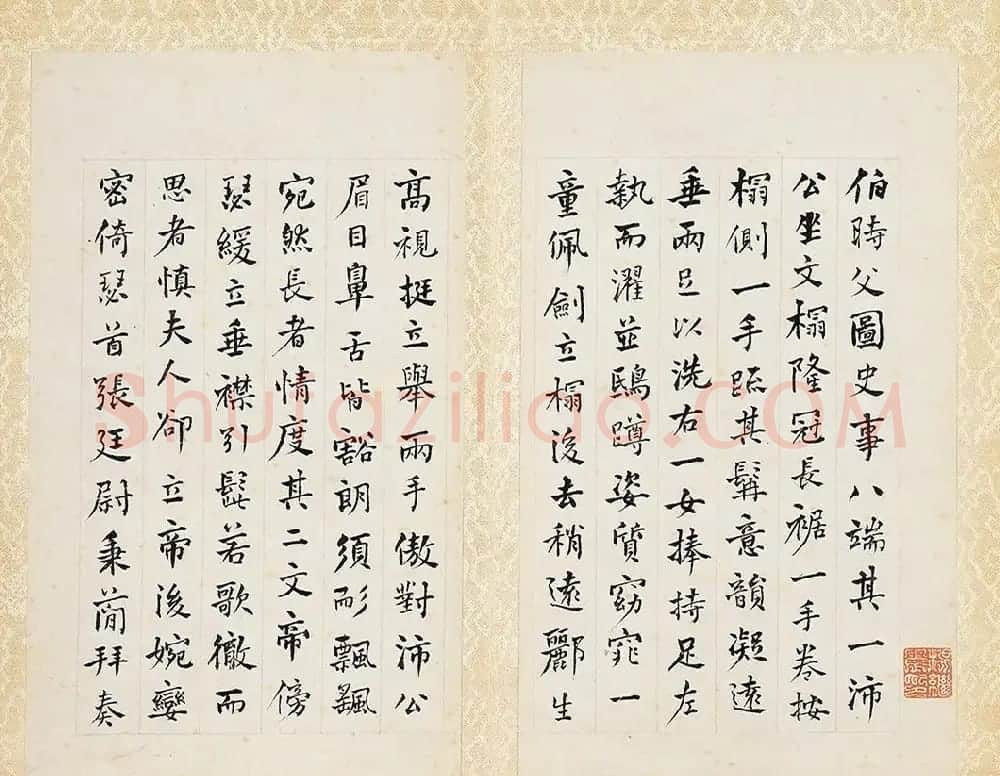 伯時父圖史事八端其一沛
公坐文榻隆冠長裾一手卷按
榻側一手䟽其髯意韻凝遠
垂兩足以洗右一女捧持足左
執而濯並鴟蹲姿質窈窕一
童佩劍立榻後去稍遠酈生
高視挺立舉兩手傲對沛公
眉目鼻舌皆豁朗須髟飄颻
宛然長者情度其二文帝傍
瑟緩立垂襟引髭若歌徹而
思者慎夫人卻立帝後婉孌
密倚瑟首張廷尉秉蕳拜奏
Shufaziliao.COM